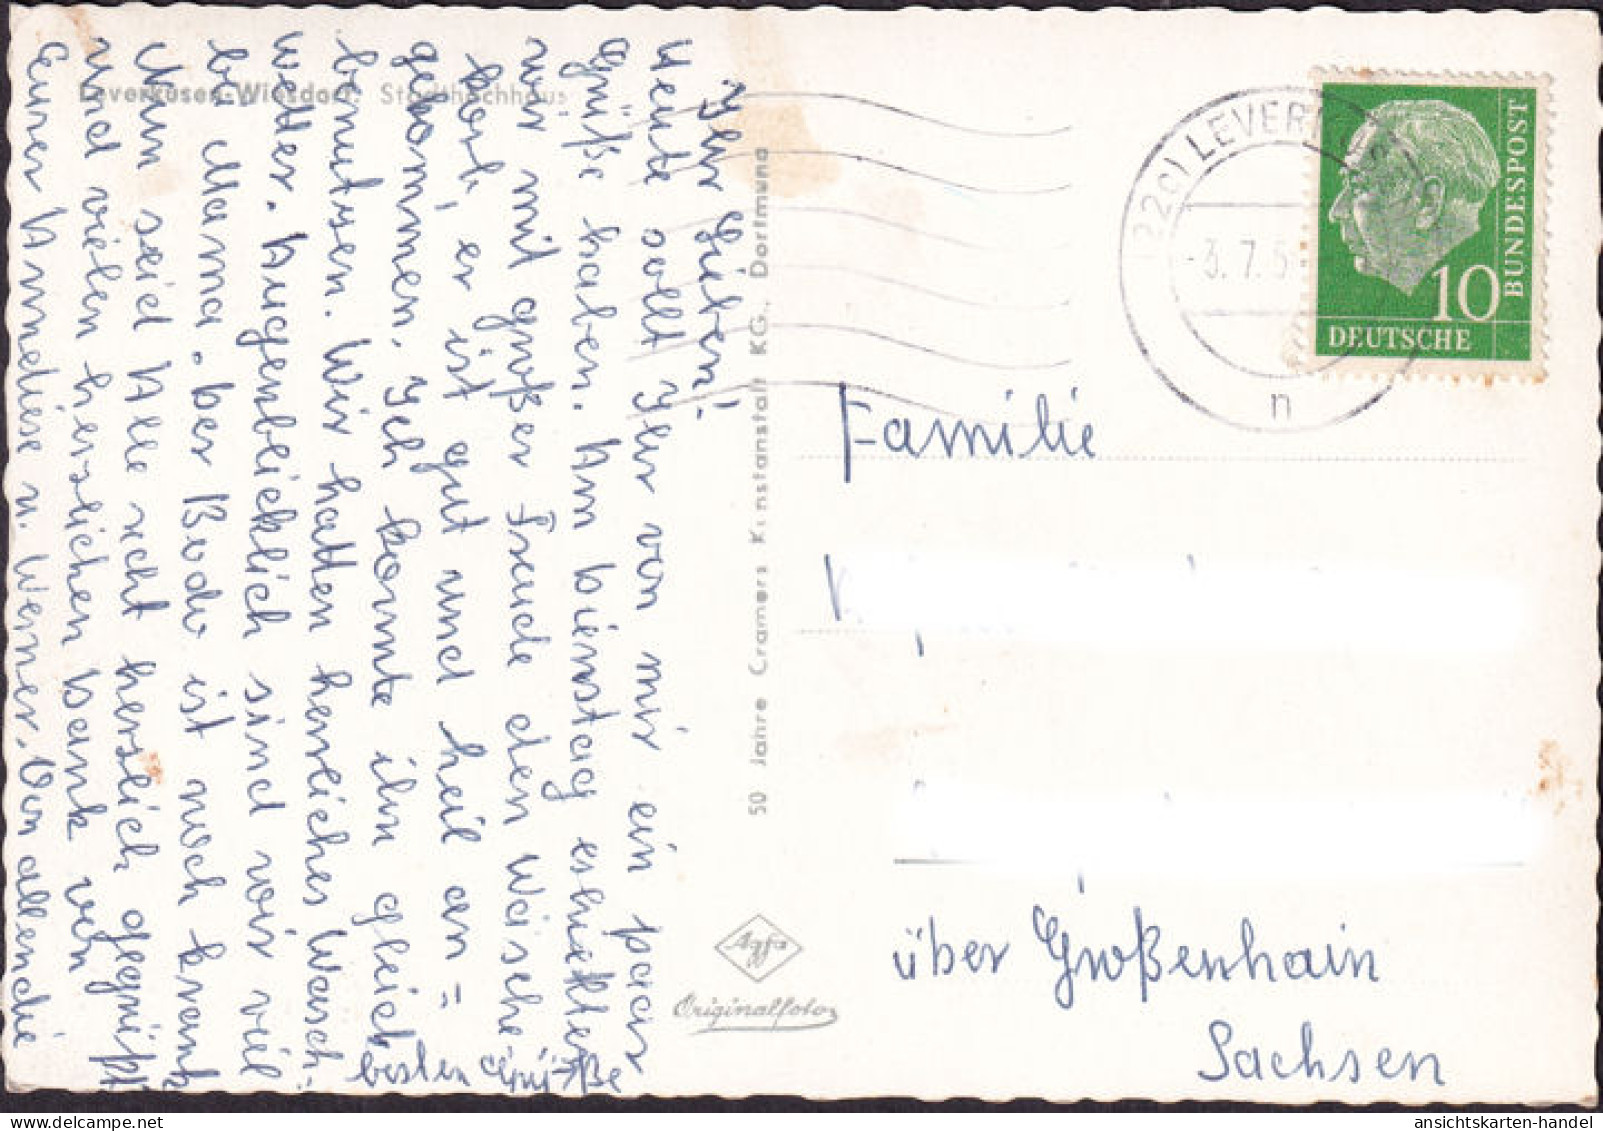 Leverkusen-Wiesdorf, Stadthochhaus
Ihr Lieben!
Heute sollt Ihr von mir ein paar
Grüße haben. Am Dienstag erhielten
wir mit großer Freude den Wäsche-
korb, er ist gut und heil an=
gekommen. Ich konnte ihn gleich
benutzen. Wir hatten herrliches Wasch-
wetter. Augenblicklich sind wir viel
bei Mama. Der Bodo ist noch krank
Nun seid Alle recht herzlich gegrüßt
und vielen herzlichen Dank von
Eurer Annediese u. Werner. Von allen die
besten Grüße
50 Jahre Cramers Kunstanstalt KG., Dortmund
Agfa
Originalfoto
(22c) LEVERK
-3.7.5
n
BUNDESPOST
10
DEUTSCHE
Familie
über Großenhain
Sachsen
ansichtskarten-handel